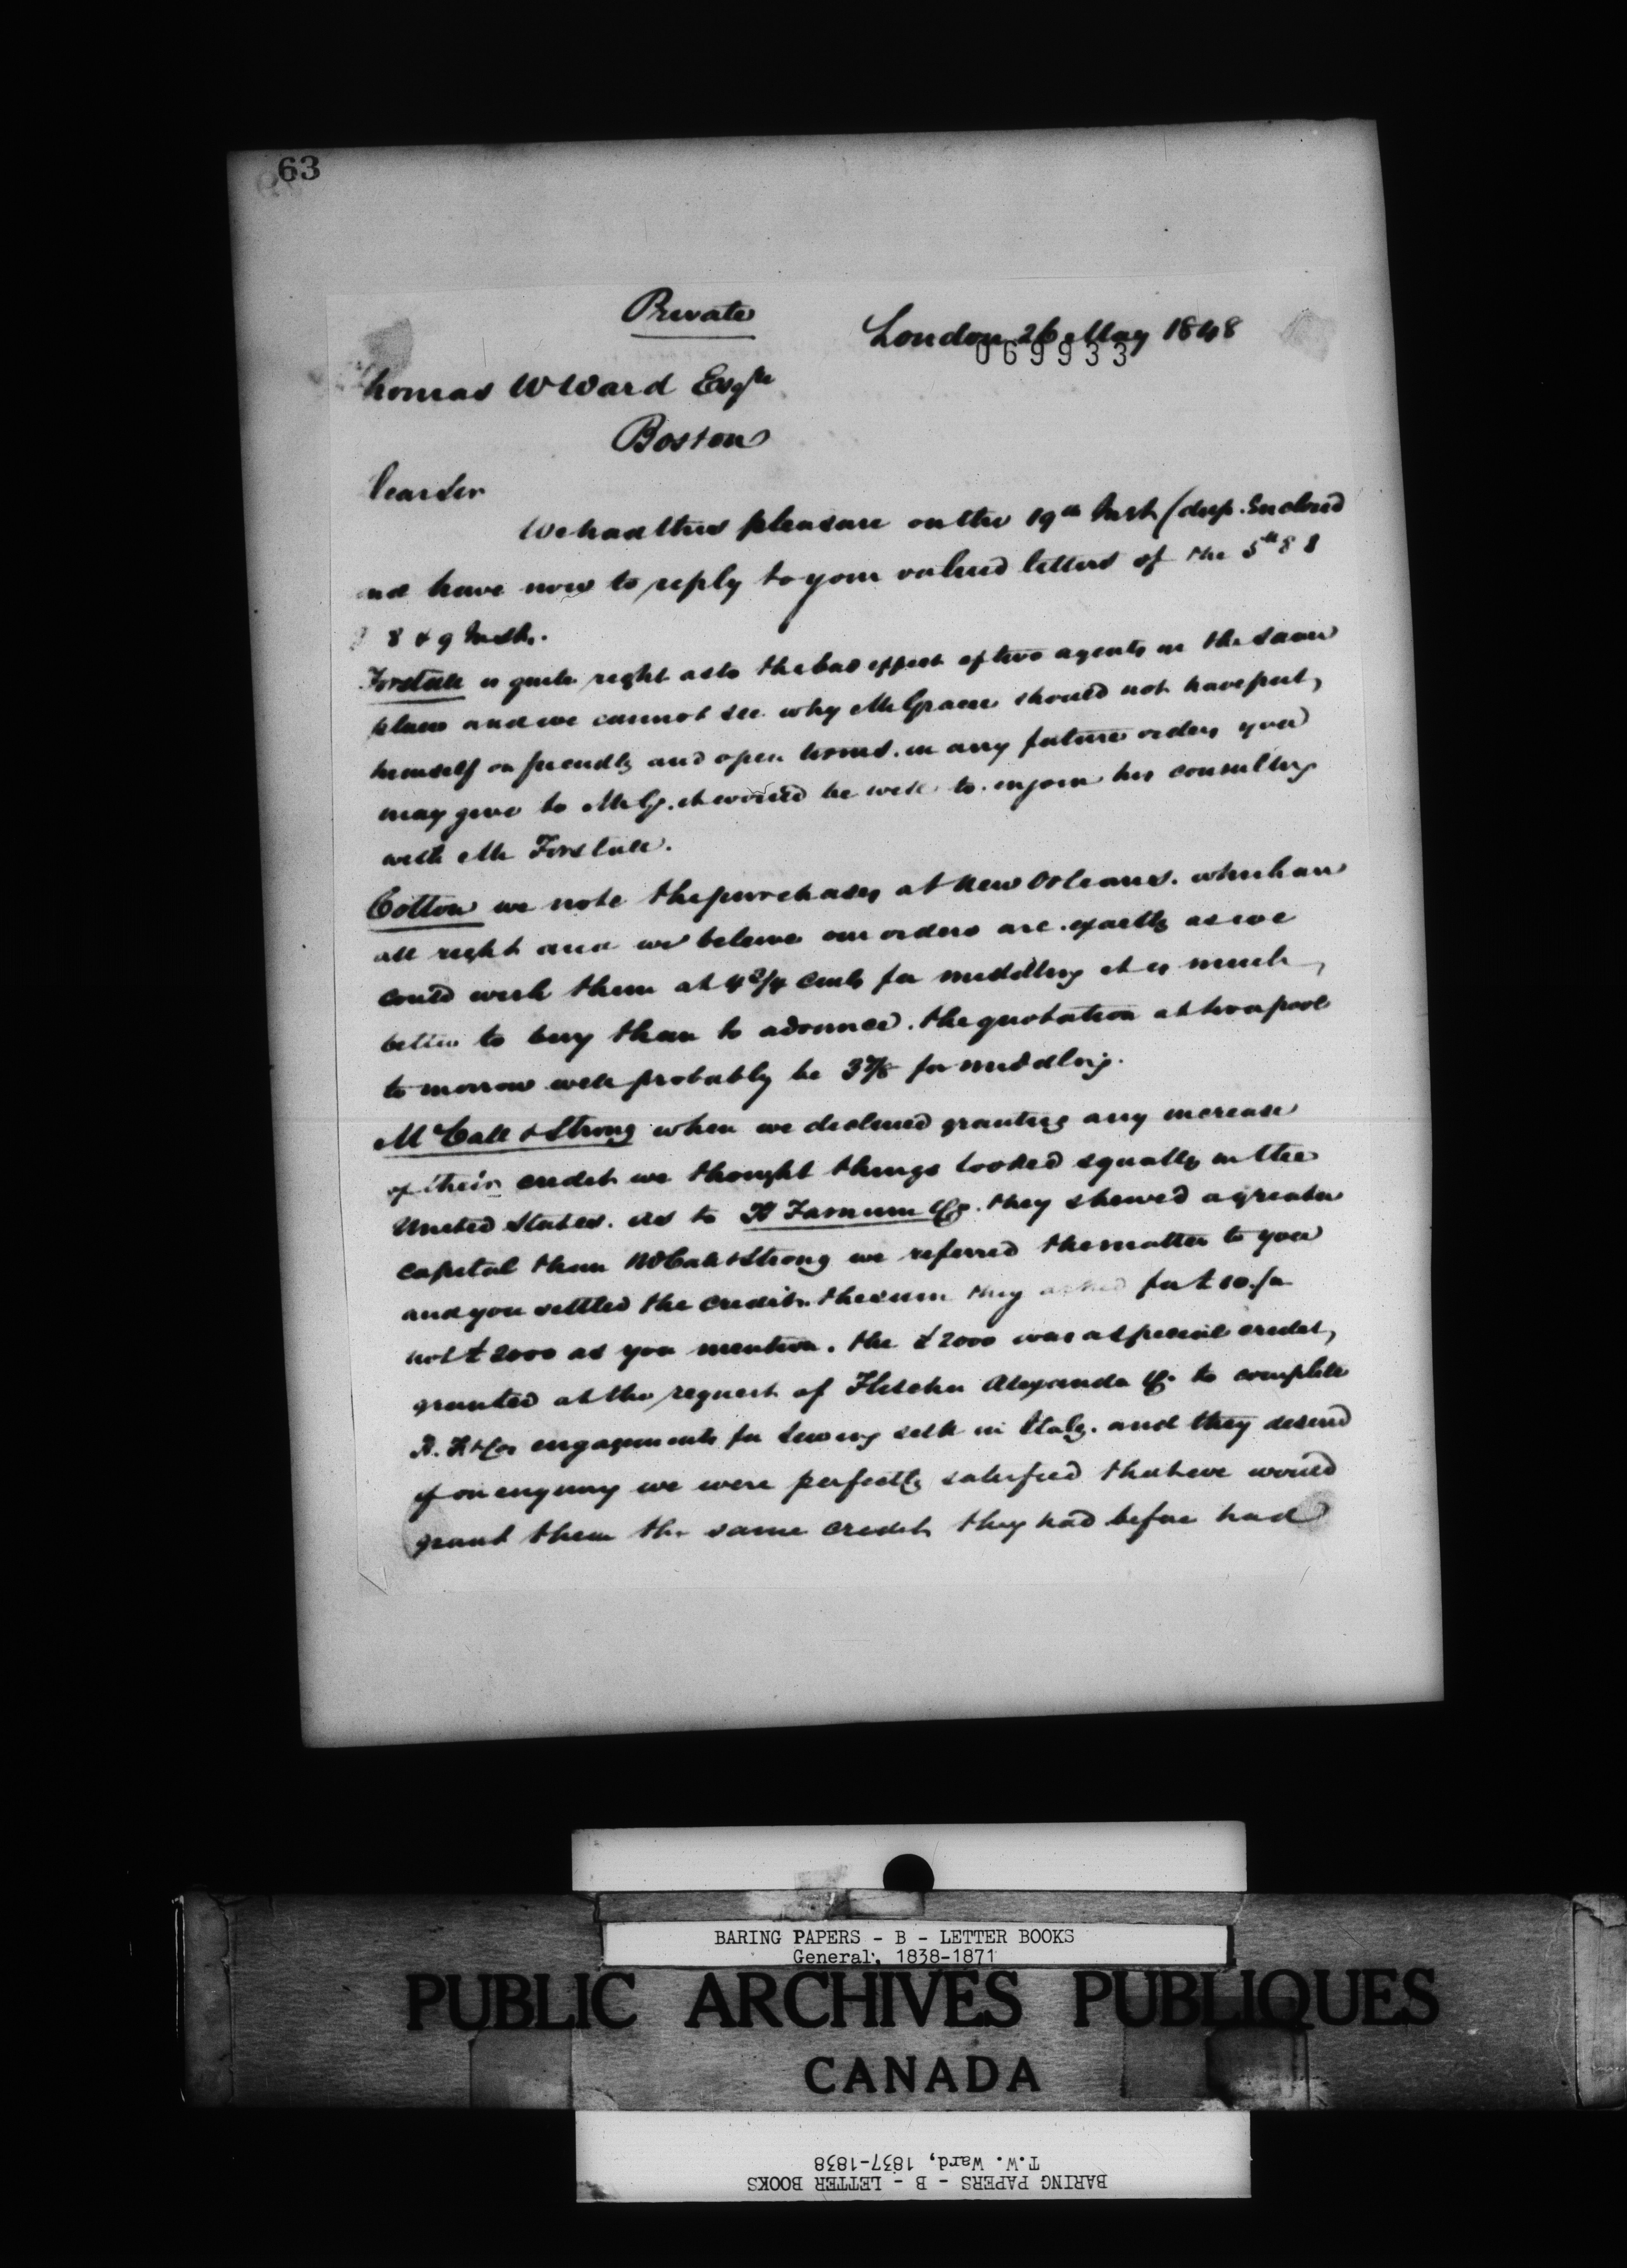 63
Private
London 26 May 1848
069933
homas W Ward Esqre
Boston
Dear Sir
We had this pleasure on the 19th Inst (dup. Enclosed
and have now to reply to your valued letters of the 5th 8 8
8 & 9 Insts.
Forstall is quite right as to the bad effect of two agents in the same
place and we cannot see why Mr Grace should not have put
himself on friendly and open terms. in any future orders you
may give to Mr G. it would be well to enjoin his consulting
with Mr Forstall.
Cotton we note the purchases at New Orleans. which are
all right and we believe our orders are exactly as we
could wish them at 4 3/4 cents for middling it is much
better to buy than to advance. the quotation at Liverpool
to morrow will probably be 3 7/8 for middling.
McCall & Strong when we declined granting any increase
of their credit we thought things looked squally in the
United States. As to H Farnum & Co. they shewed a greater
capital than McCall & Strong we referred the matter to you
and you settled the credit. the sum they asked for £10/m
not £2000 as you mention. the £2000 was a special credit,
granted at the request of Fletcher Alexander & Co to complete
engagements for sewing silk in Italy. and they desired
if on enquiry we were perfectly satisfied that we would
grant them the same credit they had before had
BARING PAPERS - B - LETTER BOOKS
General, 1838-1871
PUBLIC ARCHIVES PUBLIQUES
CANADA
BARING PAPERS - B - LETTER BOOKS
T.W. Ward, 1837-1838